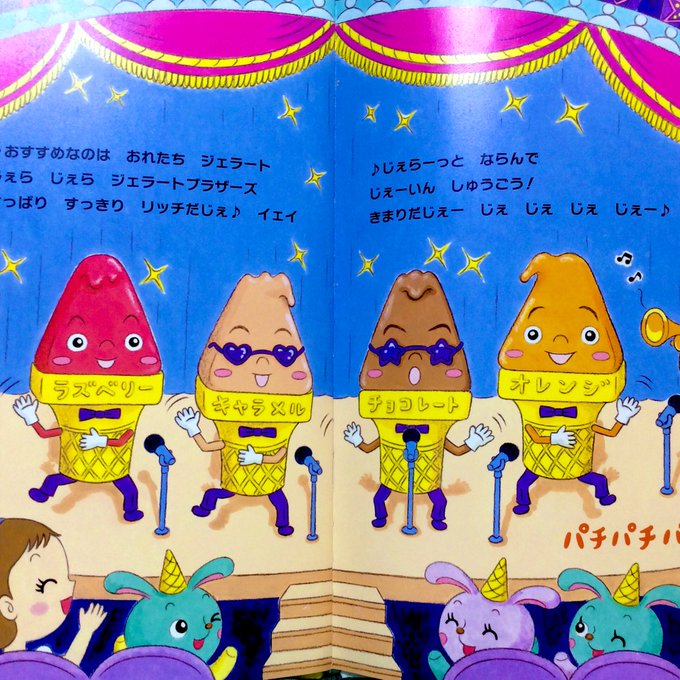 おすすめなのは おれたち ジェラート
じぇら ジェラートブラザーズ
すっきり リッチだじぇ♪ イェイ
♪じぇらーっと ならんで
じぇーいん しゅうごう！
きまりだじぇー じぇ じぇ じぇ じぇー♪
ラズベリー
キャラメル
チョコレート
オレンジ
パチパチパ